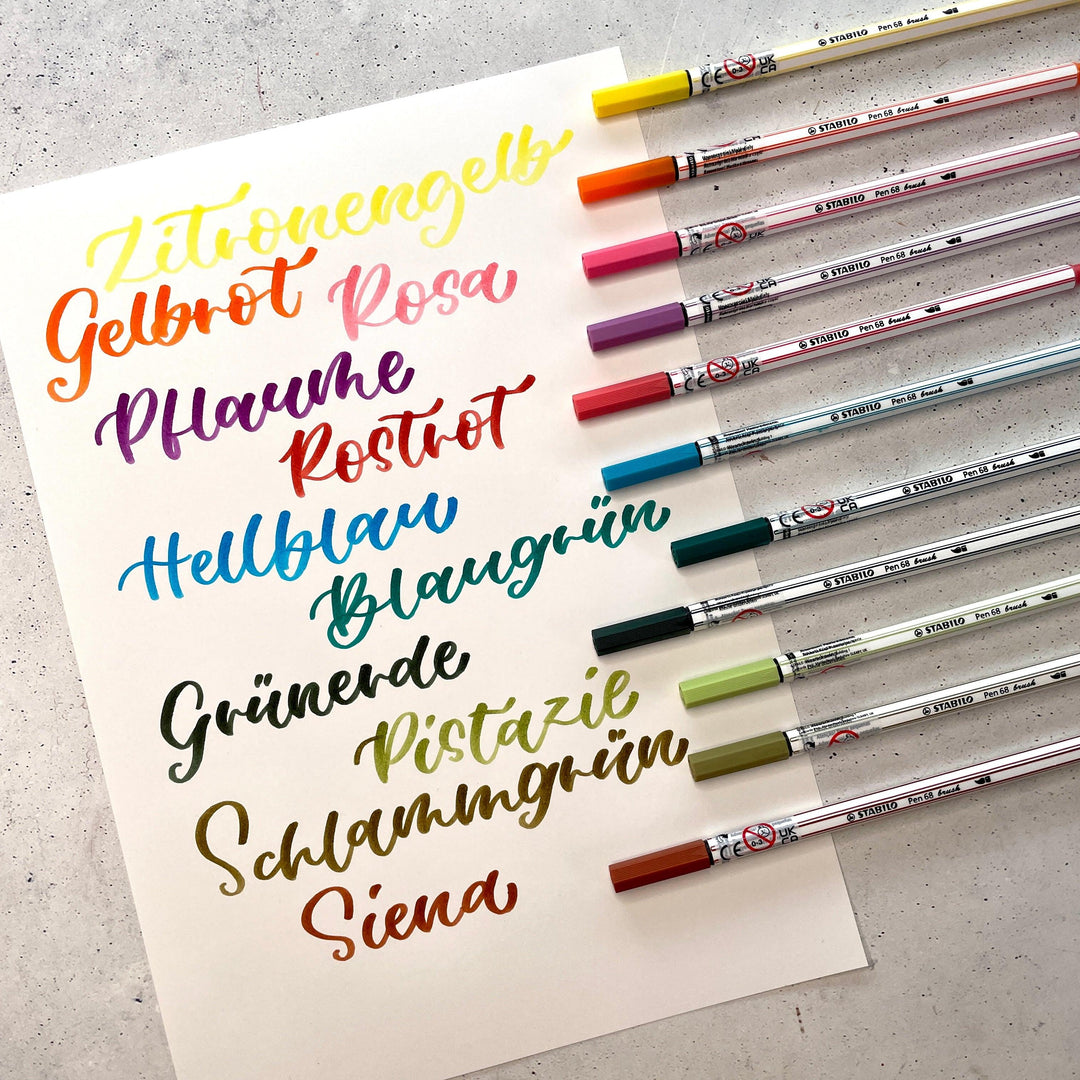 Zitronengelb
Gelbrot
Rosa
Pflaume
Rostrot
Hellblau
Blaugrün
Grünerde
Pistazie
Schlammgrün
Siena
STABILO Pen 68 brush
CE 0-3 UK CA
STABILO Pen 68 brush
STABILO Pen 68 brush
UK
STABILO Pen 68 brush
STABILO Pen 68 brush
CE 0-3
STABILO Pen 68 brush
STABILO Pen 68 brush
CE UK CA
STABILO Pen 68 brush
STABILO Pen 68 brush
STABILO Pen 68 brush
STABILO Pen 68 brush
CE 0-3 UK CA